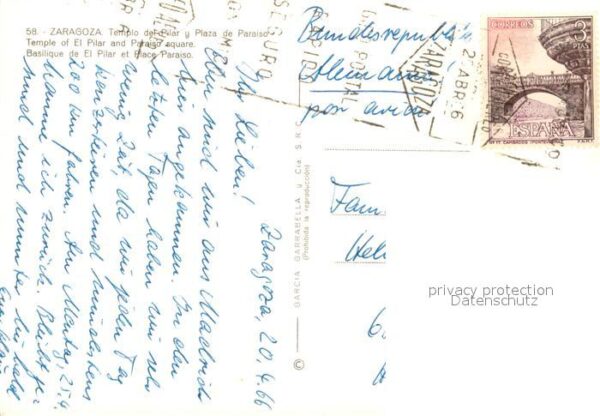 58. - ZARAGOZA. Templo del Pilar y Plaza de Paraiso.
Temple of El Pilar and Paraiso square.
Basilique de El Pilar et Place Paraiso.
Zaragoza, 20.4.66
Ihr Lieben!
Eben sind wir aus Madrid
hier angekommen. In den
letzten Tagen haben wir sehr
wenig Zeit, da wir jeden Tag
konzertieren und mindestens
200 km fahren. Am Montag, 25.4.
komme ich zurück. Bleibt ge-
sund und munter bis bald
© GARCIA GARRABELLA y Cia. S.R.
(Prohibida la reproducción)
Bundesrepublik
Alemania
por avion
Fam
6
CORREOS
3 PTAS
ESPAÑA
CAMBADOS
ZARAGOZA
ABR 6
POSTAL
SEGURO
privacy protection
Datenschutz